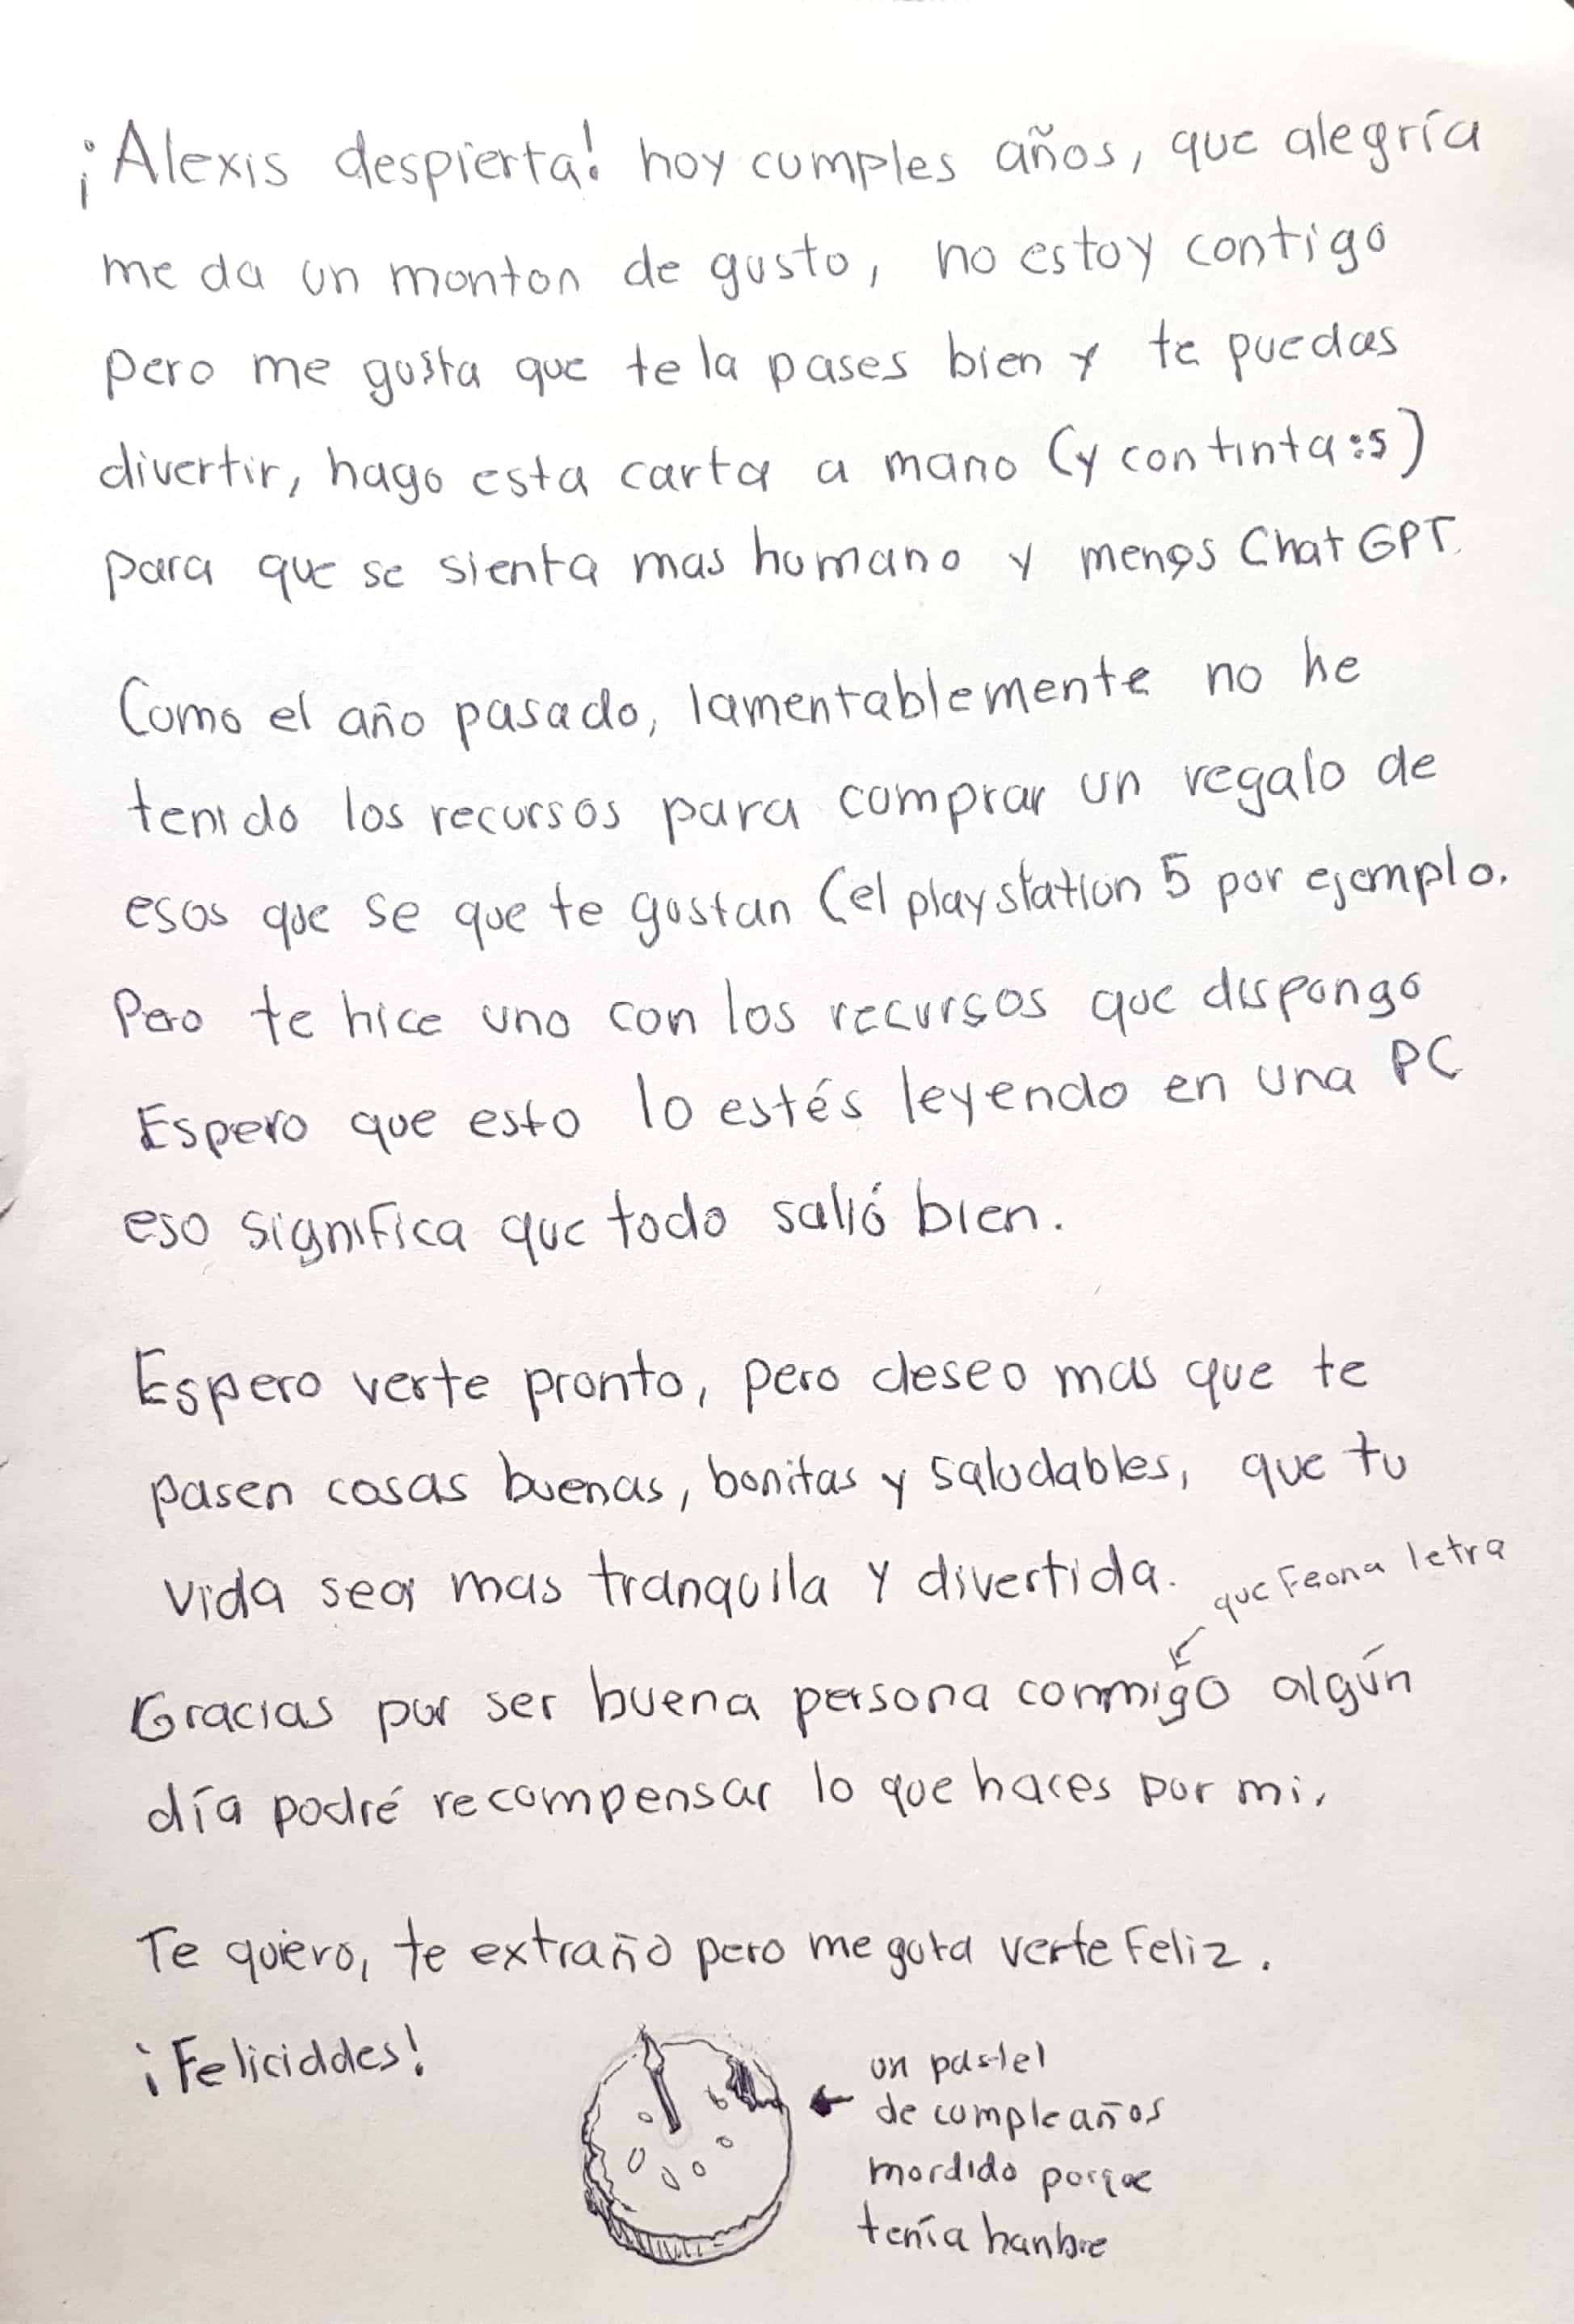 ¡Alexis despierta! hoy cumples años, que alegría
me da un monton de gusto, no estoy contigo
pero me gusta que te la pases bien y te puedas
divertir, hago esta carta a mano (y con tinta :s)
para que se sienta mas humano y menos Chat GPT.
Como el año pasado, lamentablemente no he
tenido los recursos para comprar un regalo de
esos que se que te gustan (el playstation 5 por ejemplo.
Pero te hice uno con los recursos que dispongo
Espero que esto lo estés leyendo en una PC
eso significa que todo salió bien.
Espero verte pronto, pero deseo mas que te
pasen cosas buenas, bonitas y saludables, que tu
vida sea mas tranquila y divertida.
que Feona letra
Gracias por ser buena persona conmigo algún
día podré recompensar lo que haces por mi.
Te quiero, te extraño pero me guta verte Feliz.
¡Feliciddes!
un pastel
de cumpleaños
mordido porque
tenía hanbre